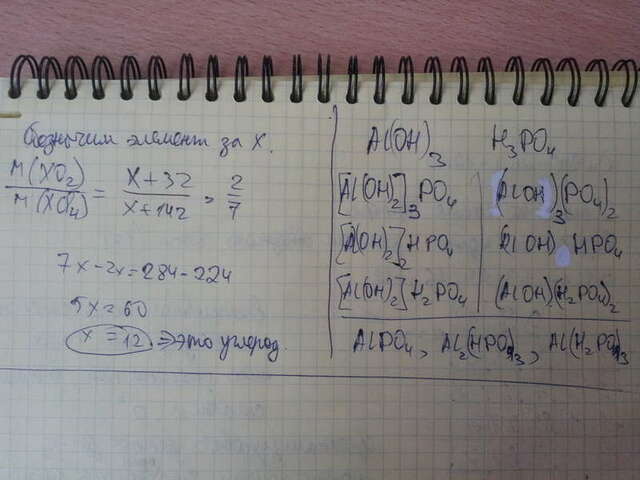 Обозначим элемент за X.
M(XO₂)/M(XCl₄) = X+32/X+142 = 2/7
7x-2x=284-224
5x=60
x=12 ⇒ это углерод
Al(OH)₃ H₃PO₄
[Al(OH)₂]₃PO₄ (AlOH)₃(PO₄)₂
[Al(OH)₂]₂HPO₄ (AlOH) HPO₄
[Al(OH)₂]H₂PO₄ (AlOH)(H₂PO₄)₂
AlPO₄, Al₂(HPO₄)₃, Al(H₂PO₄)₃